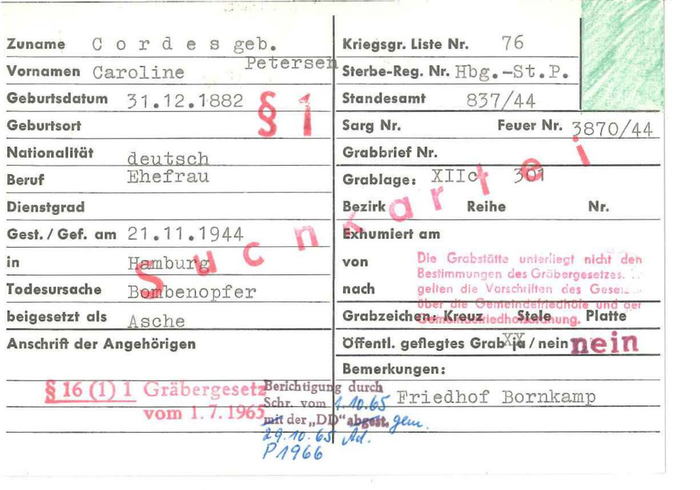 Zuname Cordes geb.
Petersen
Vornamen Caroline
Geburtsdatum 31.12.1882
§ 1
Geburtsort
Nationalität deutsch
Beruf Ehefrau
Dienstgrad
Gest./Gef. am 21.11.1944
in Hamburg
Todesursache Bombenopfer
beigesetzt als Asche
Anschrift der Angehörigen
§ 16 (1) 1 Gräbergesetz
vom 1.7.1965
Suchkartei
Kriegsgr. Liste Nr. 76
Sterbe-Reg. Nr. Hbg.-St.P.
Standesamt 837/44
Sarg Nr. Feuer Nr. 3870/44
Grabbrief Nr.
Grablage: XIIc 301
Bezirk Reihe Nr.
Exhumiert am
von
nach
Die Grabstätte unterliegt nicht den
Bestimmungen des Gräbergesetzes.
gelten die Vorschriften des
über die Gemeindefriedhöfe und der
Gemeindefriedhofsordnung.
Grabzeichen: Kreuz Stele Platte
Öffentl. gepflegtes Grab ja / nein nein
XX
Bemerkungen:
Friedhof Bornkamp
Berichtigung durch
Schr. vom 1.10.65
mit der „DD" abgest. gem.
29.10.65
P 1966